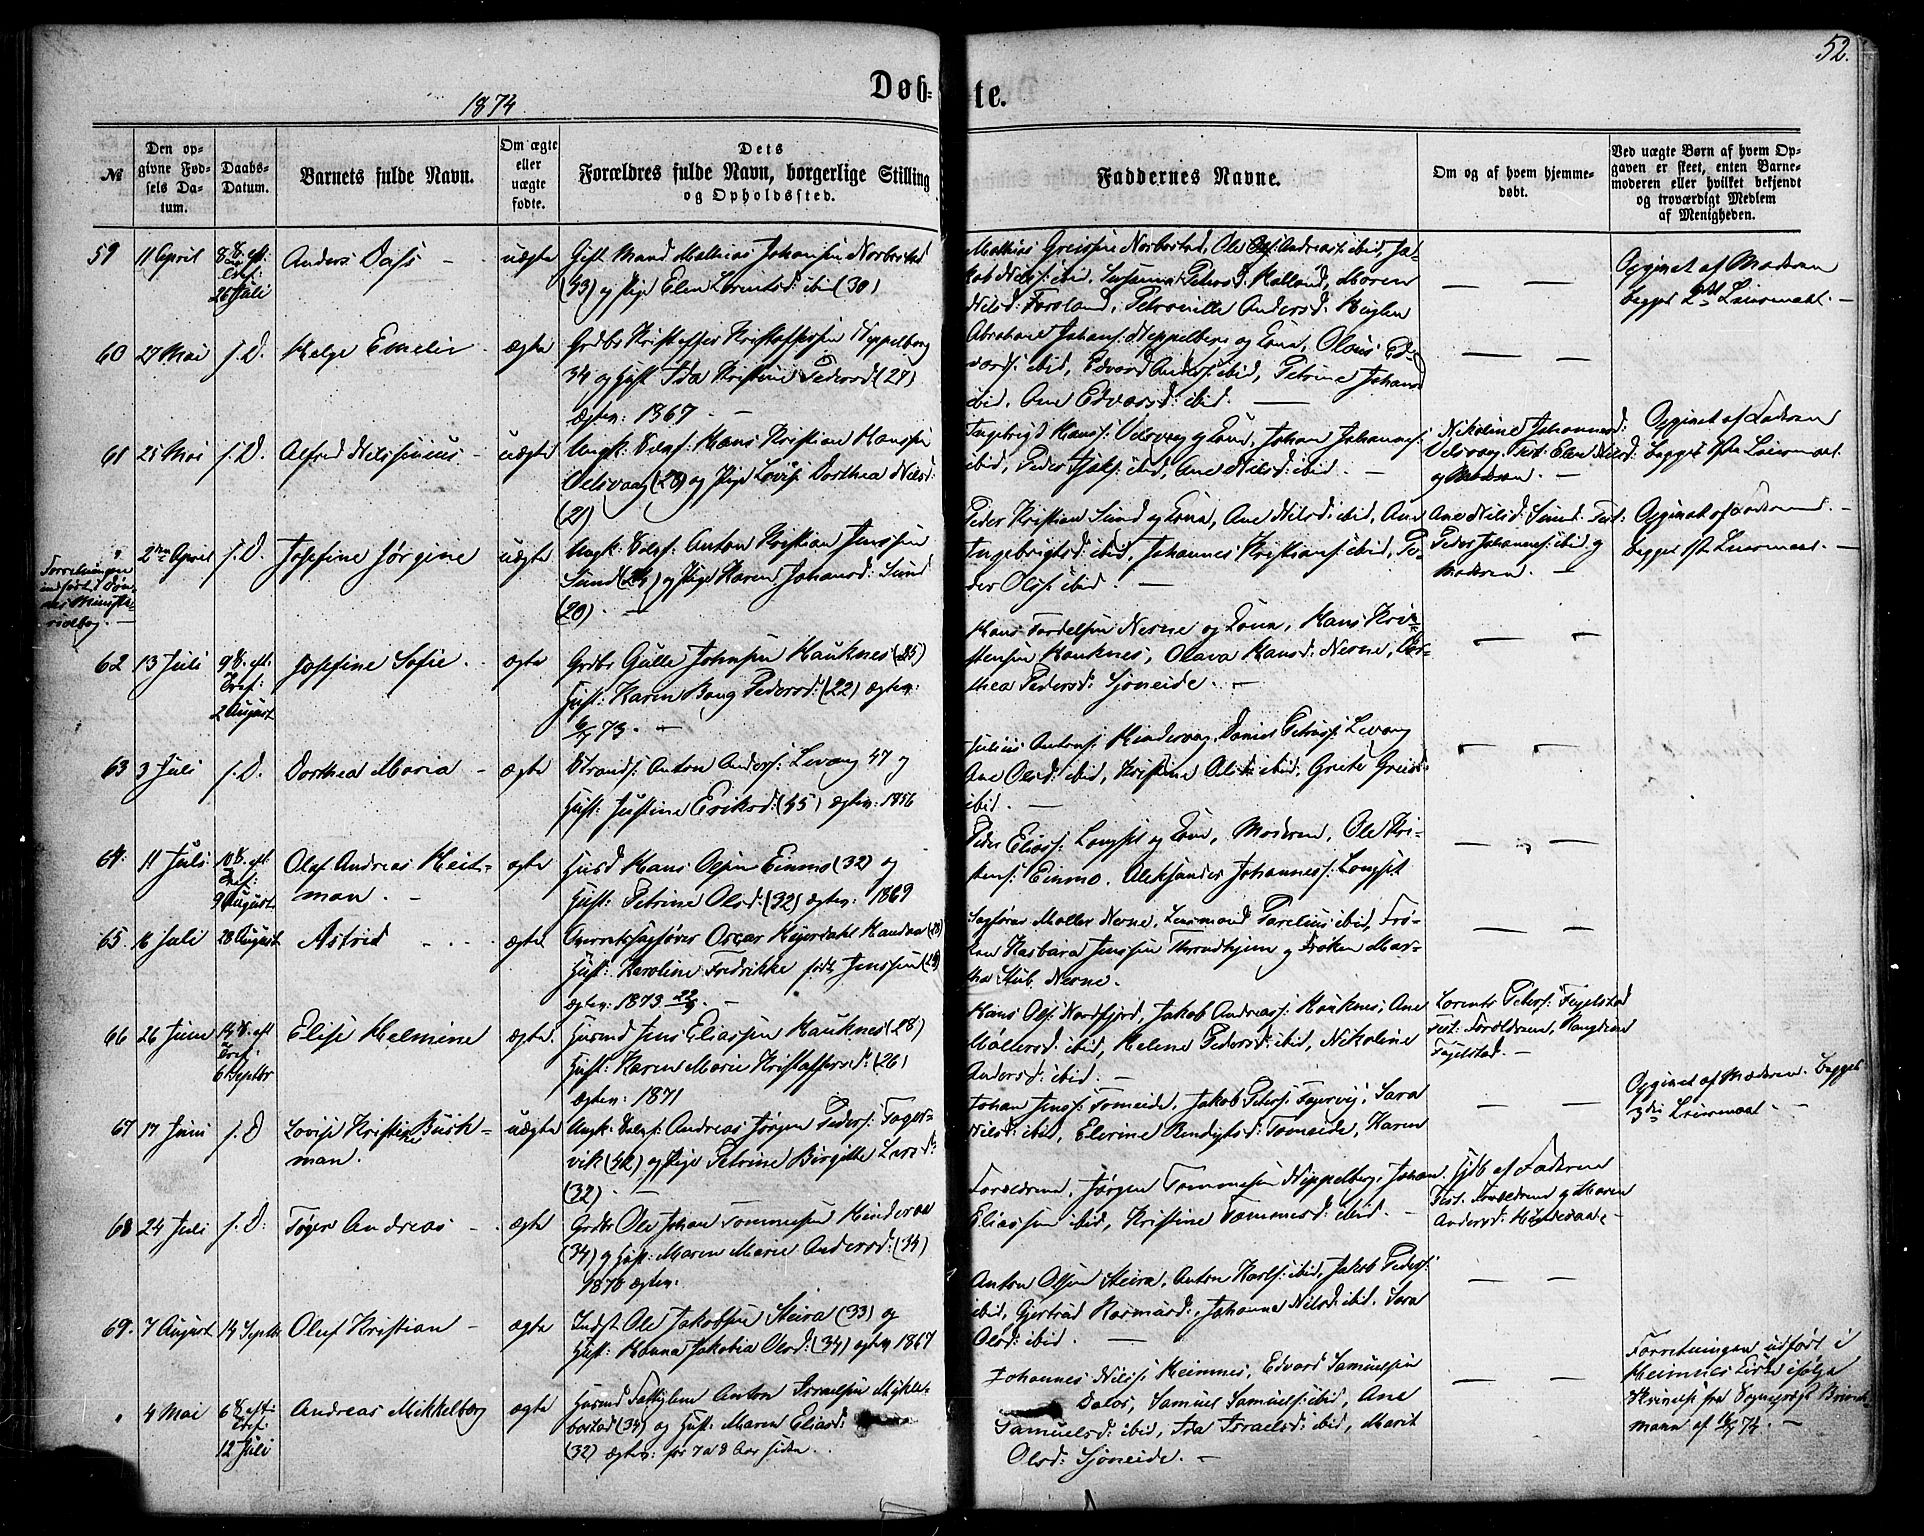 52.
1874
Døb-
te.
№
Den op-
givne Fød-
sels Da-
tum.
Daabs-
Datum.
Barnets fulde Navn.
Om ægte
eller
uægte
fødte.
Dets
Forældres fulde Navn, borgerlige Stilling
og Opholdssted.
Faddernes Navne.
Om og af hvem hjemme-
døbt.
Ved uægte Børn af hvem Op-
gaven er skeet, enten Barne-
moderen eller hvilket bekjendt
og troværdigt Medlem
af Menigheden.
59 11 April 8 S. eft: Tref: 26 Juli Anders Dass - uægte
Gift Mand Mathias Johansen
(43) og Pige Elen Lorentsd: ibid (30)
Mathias Greissen Ole Andreas: ibid, Ja-
kob Nils: ibid, Susanna Petersd: Moren
Nilsd: Forsland, Petronille Andersd:
Opgivet af Moderen
begges 2det Leiermaal. -
60 27 Mai s. D. Helge Emelie - ægte
Grdbr Kristoffer Kristoffersen Neppelberg
34 og Hust: Ida Kristine Pedersd (27)
ægtev: 1867. -
Abraham Johans: Neppelberg og Kona, Olaus Ed-
vards: ibid, Edvard Anders: ibid, Petrine Johansd
ibid, Ane Edvardsd: ibid. -
61 25 Mai s. D. Alfred Nilssinius - uægte
Ungk: Hans Kristian Hanssen
Velsvaag (28) og Pige Lovise Dorthea Nilsd:
(21)
Ingebrigt Hans: Velsvaag og Kona, Johan Johannes:
ibid, Peder ibid, Ane Nilsd: ibid. -
Nikoline Johannesd:
Velsvaag Test: Elen Nilsd:
og Moderen. -
Opgivet af Faderen
begges 1ste Leiermaal.
" 2den April s. D. Josefine Jørgine uægte
Forretningen
indført i Døn-
nes Ministe-
rialbog. -
Ungk: Anton Kristian Jenssen
Sund (24) og Pige Karen Johansd: Sund
(20). -
Peder Kristian Sund og Kona, Ane Nilsd: ibid, Ane
Ingebrigtsd: ibid, Johannes Kristians: ibid, Pe-
der Ols: ibid. -
Ane Nilsd: Sund. Test:
Peder Johannes: ibid og
Moderen. -
Opgivet af Faderen. -
begges 1ste Leiermaal. -
62 13 Juli 9 S. eft: Tref: 2 August Josefine Sofie. - ægte
Grdbr Gulle Johnsen Hauknes (25)
Hust: Karen Bang Pedersd: (22) ægtev:
73. -
Hans Tordelsen Nerne og Kona, Hans Kri-
stensen Hauknes, Olava Hansd: Nerne, Dor-
thea Pedersd: Sjoneide. -
63 3 Juli s. D. Dorthea Maria - ægte
Strands: Anton Anders: Levang 47 og
Hust: Justine Eriksd: (45) ægtev: 1856
Julius Antons: Daniel Petrus: Levang
Ane Olsd: ibid, Kristine Olsd: ibid, Grete Greisd:
ibid. -
64. 11 Juli 10 S. eft: Tref: 9 August Olaf Andreas Heit-
man. -
ægte
Husd Hans Olsen Einmo (32) og
Hust: Petrine Olsd: (32) ægtev: 1869
Peder Elias: Langset og Kona, Moderen, Ole Kri-
stens: Einmo. Aleksander Johannes: Langset
65 16 Juli 28 August Astrid - - - ægte
Overretssagfører Oscar
Hust: Karoline Fredrikke født Jenssen
ægtev: 1873.
Sagfører Møller Nerne, Lensmand Parelius ibid, Frø-
ken Barbara Jenssen Throndhjem og Frøken Mar-
tha Stub, Nerne.
66 26 Juni 14 S. eft Tref. 6 Septbr Elise Helmine ægte.
Husmd Jens Eliassen Hauknes (28)
Hust: Karen Marie Kristoffersd: (26)
ægtev: 1871
Hans Ols: Nordfjord, Jakob Andreas: Hauknes, Ane
Møllersd: ibid, Helene Pedersd: ibid, Nikoline
Andersd: ibid. -
Lorents Peters: Fagelstad
Test: Forældrene,
Fagelstad. -
67 17 Juni s. D Lovise Kristine Busk-
man.
uægte
Ungk: Andreas Jørgen Peders: Fager-
vik (42) og Pige Petrine Birgitte Larsd:
(32) -
Johan Jens: Tomeide, Jakob Peters: Fagervig, Sara
Nilsd: ibid, Elerine Bendigtsd: Tomeide, Karen
Opgivet af Moderen. Begges
3die Leiermaal -
68 24 Juli s. D: Tøger Andreas - ægte
Grdbr Ole Johan Tommesen
(34) og Hust: Maren Marie Andersd: (34)
1870 ægtev:
Forældrene, Jørgen Tommesen Neppelberg, Johan
Eliassen ibid, Kristine Tommesd: ibid. -
Gdb af Faderen
Test. Forældrene og Maren
Andersd:
69. 7 August 14 Septbr Oluf Kristian - ægte
Indst Ole Jakobsen Steira (33) og
Hust: Jakobia Olsd: (34) ægtev 1867
Anton Olsen Steira, Anton Karls: ibid, Jakob Peders:
ibid, Gjertrud Rasmusd:, Johanna Nilsd: ibid. Sara
Olsd: ibid. -
" 4 Mai 6 S. eft: Tref: 12 Juli Andreas Mikkelborg ægte
Husmd Anton Israelsen Mykle-
bostad (34) og Hust: Maren Eliasd:
(32) ægtev: for 7 a 8 Aar siden. -
Johannes Nils: Heimnes, Edvard Samuelsen
Dalos, Samuel Samuels: ibid, Ane
Samuelsd: ibid, Ida Israelsd: ibid, Marit
Olsd: Sjoneide. -
Forretningen udført i
Heimnes Kirke ifølge
fra Sogneprest Brink-
mann af 74. -